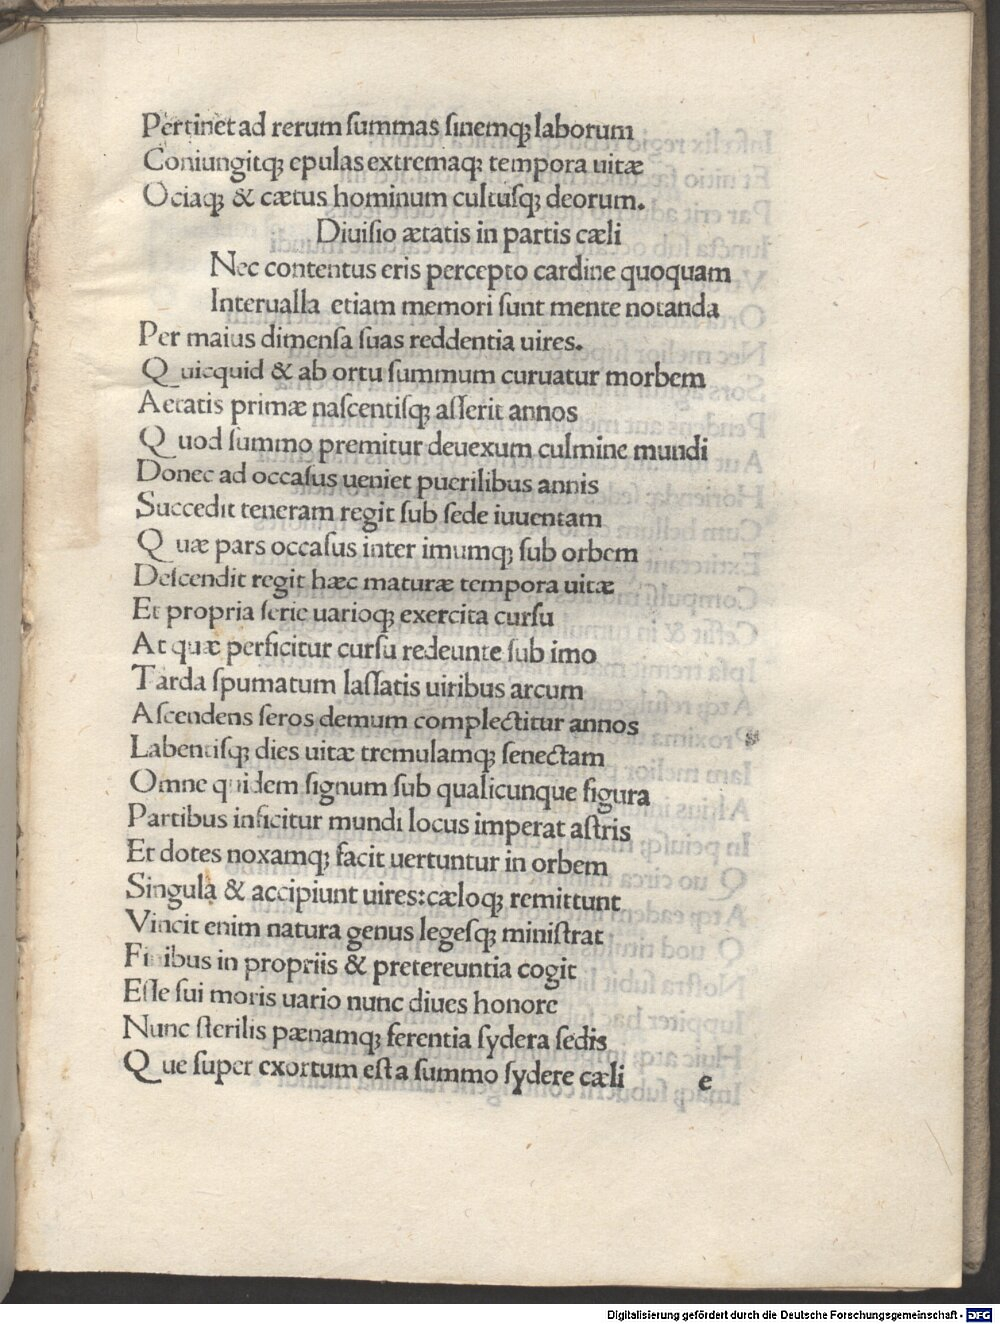 Pertinet ad rerum ſummas finemq; laborum
Coniungitq; epulas extremaq; tempora uitæ
Ociaq; & cætus hominum cultuſq; deorum.
Diuiſio ætatis in partis cæli
Nec contentus eris percepto cardine quoquam
Interualla etiam memori ſunt mente notanda
Per maius dimenſa ſuas reddentia uires.
Quicquid & ab ortu ſummum curuatur morbem
Aetatis primæ naſcentiſq; aſſerit annos
Quod ſummo premitur deuexum culmine mundi
Donec ad occaſus ueniet puerilibus annis
Succedit teneram regit ſub ſede iuuentam
Quæ pars occaſus inter imumq; ſub orbem
Deſcendit regit hæc maturæ tempora uitæ
Et propria ſerie uarioq; exercita curſu
At quæ perficitur curſu redeunte ſub imo
Tarda ſpumatum laſſatis uiribus arcum
Aſcendens ſeros demum complectitur annos
Labentiſq; dies uitæ tremulamq; ſenectam
Omne quidem ſignum ſub qualicunque figura
Partibus inficitur mundi locus imperat aſtris
Et dotes noxamq; facit uertuntur in orbem
Singula & accipiunt uires: cæloq; remittunt
Vincit enim natura genus legeſq; miniſtrat
Finibus in propriis & pretereuntia cogit
Eſſe ſui moris uario nunc diues honore
Nunc ſterilis pænamq; ferentia ſydera ſedis
Que ſuper exortum eſt a ſummo ſydere cæli
e
Digitalisierung gefördert durch die Deutsche Forschungsgemeinschaft - DFG